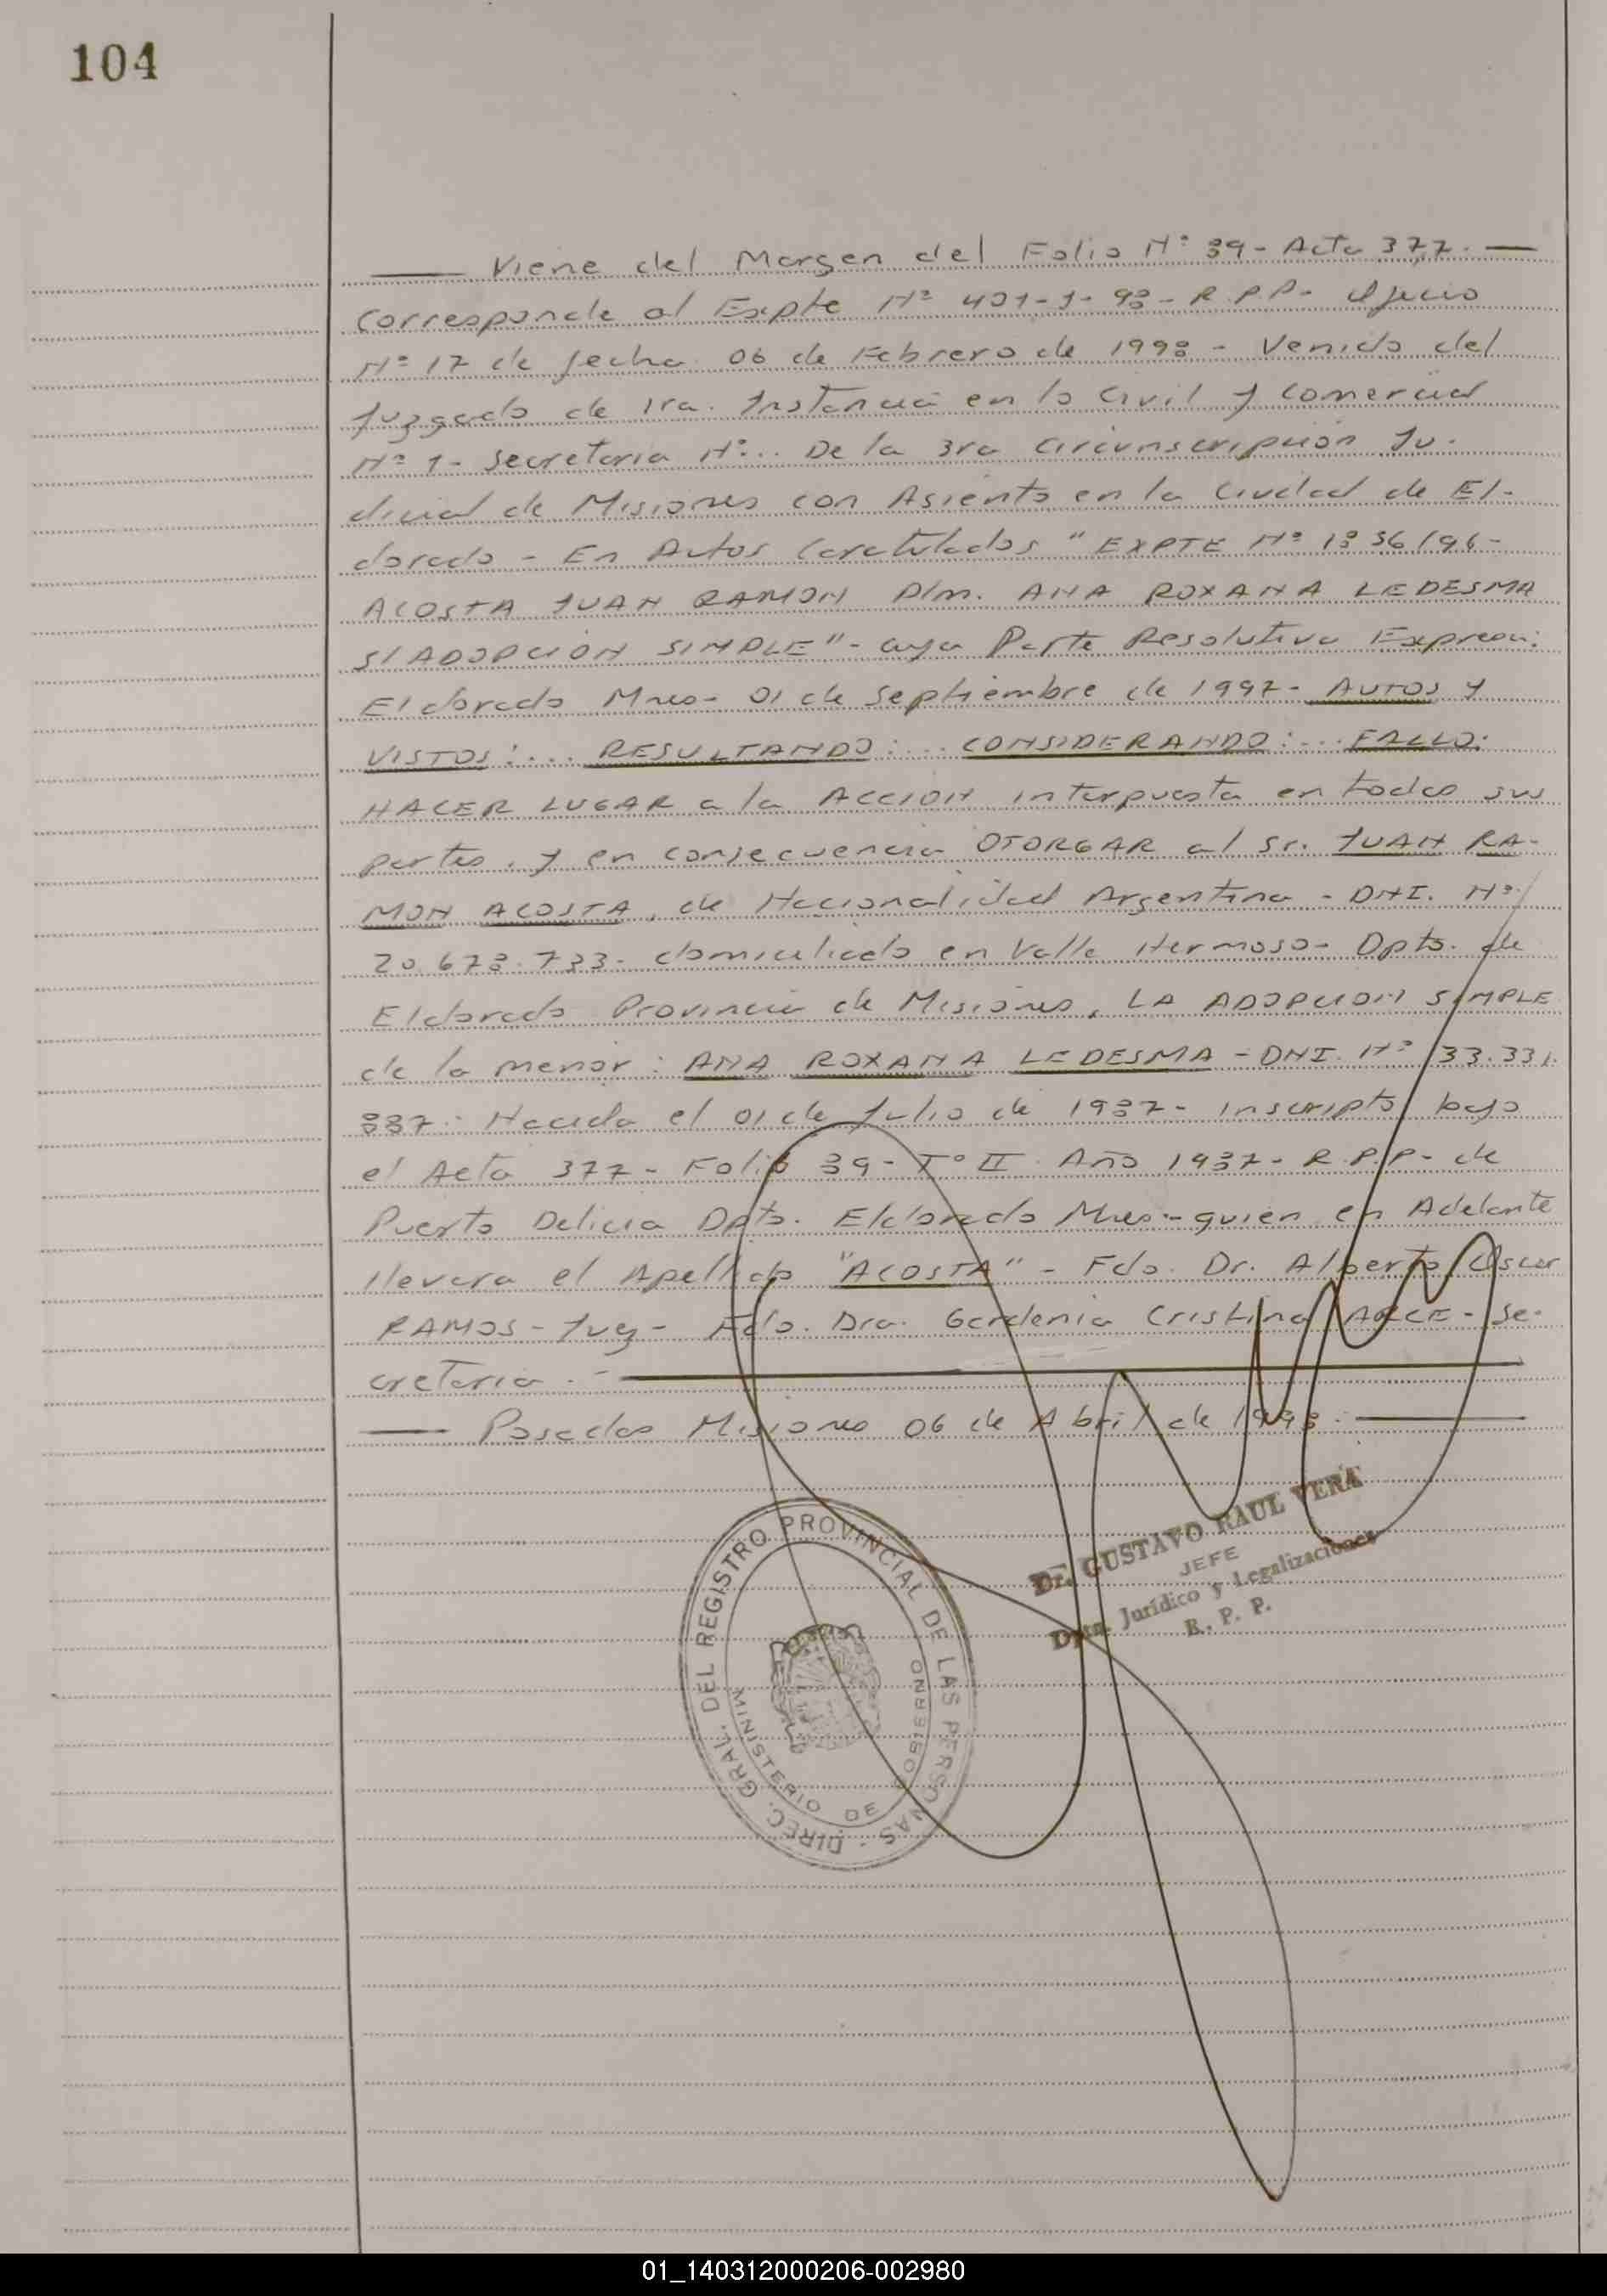 104
Viene del Margen del Folio Nº 89 - Acta 377.
Corresponde al Expte Nº 401-J-98 - R.P.P- Oficio
Nº 17 de fecha 06 de Febrero de 1998 - Venido del
Juzgado de 1ra. Instancia en lo Civil y Comercial
Nº 1 - Secretaria Nº... De la 3ra Circunscripción Ju-
dicial de Misiones con Asiento en la Ciudad de El-
dorado - En Autos Caratulados "EXPTE Nº 1836/96 -
ACOSTA JUAN RAMON P/m. ANA ROXANA LEDESMA
S/ADOPCION SIMPLE" - cuya Parte Resolutiva Expresa:
Eldorado Mnes - 01 de Septiembre de 1997 - AUTOS Y
VISTOS:... RESULTANDO:... CONSIDERANDO:... FALLO:
HACER LUGAR a la ACCION interpuesta en todas sus
partes. y en consecuencia OTORGAR al Sr. JUAN RA-
MON ACOSTA, de Nacionalidad Argentina - DNI. Nº
20.678.733 - domiciliado en Valle Hermoso - Dpto. de
Eldorado Provincia de Misiones, LA ADOPCION SIMPLE
de la menor: ANA ROXANA LEDESMA - DNI. Nº 33.331.
887 - Nacida el 01 de Julio de 1987 - inscripta bajo
el Acta 377 - Folio 89 - Tº II Año 1987 - R.P.P - de
Puerto Delicia Dpto. Eldorado Mnes - quien en Adelante
llevara el Apellido "ACOSTA" - Fdo. Dr. Alberto Oscar
RAMOS - Juez - Fdo. Dra. Gardenia Cristina ARCE - Se-
cretaria.-
Posadas Misiones 06 de Abril de 1998.
DIREC. GRAL. DEL REGISTRO PROVINCIAL DE LAS PERSONAS -
MINISTERIO DE GOBIERNO
Dr. GUSTAVO RAUL VERA
JEFE
Dpto. Jurídico y Legalizaciones
R. P. P.
01_140312000206-002980